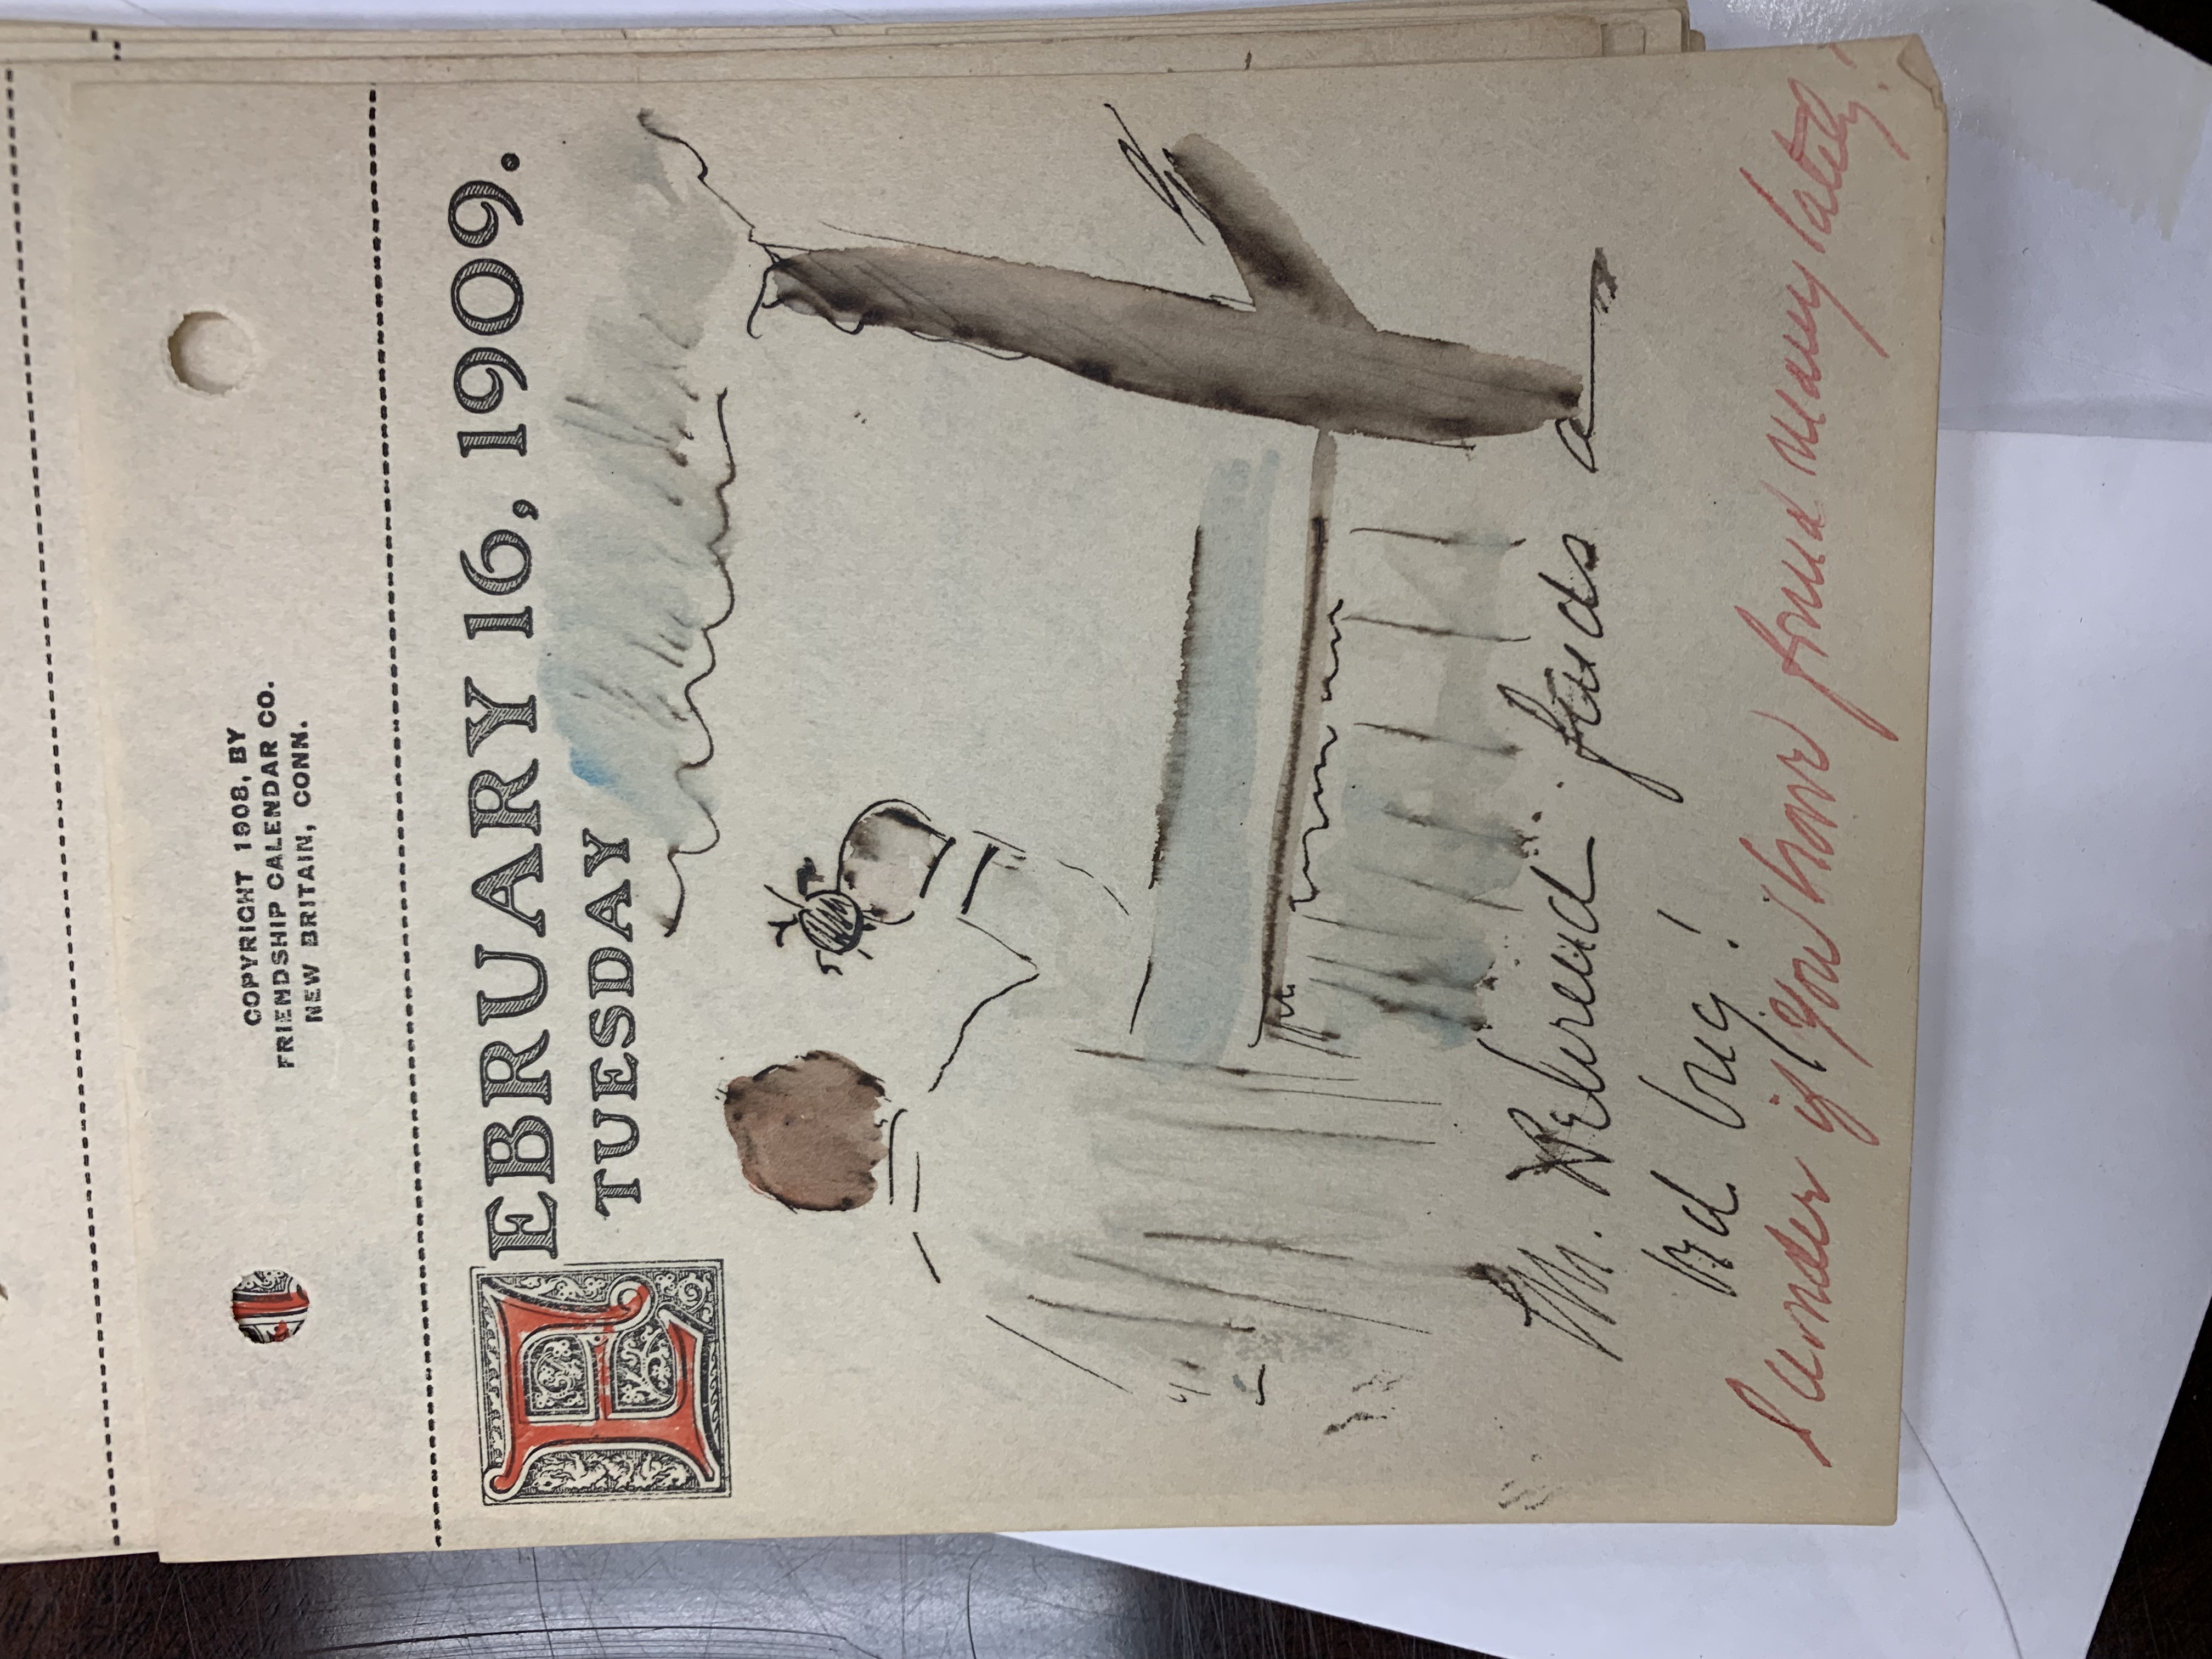 COPYRIGHT 1908, BY
FRIENDSHIP CALENDAR CO.
NEW BRITAIN, CONN.
FEBRUARY 16, 1909.
TUESDAY
Mr. Behrend finds a
bed bug!
I wonder if you have found many lately!